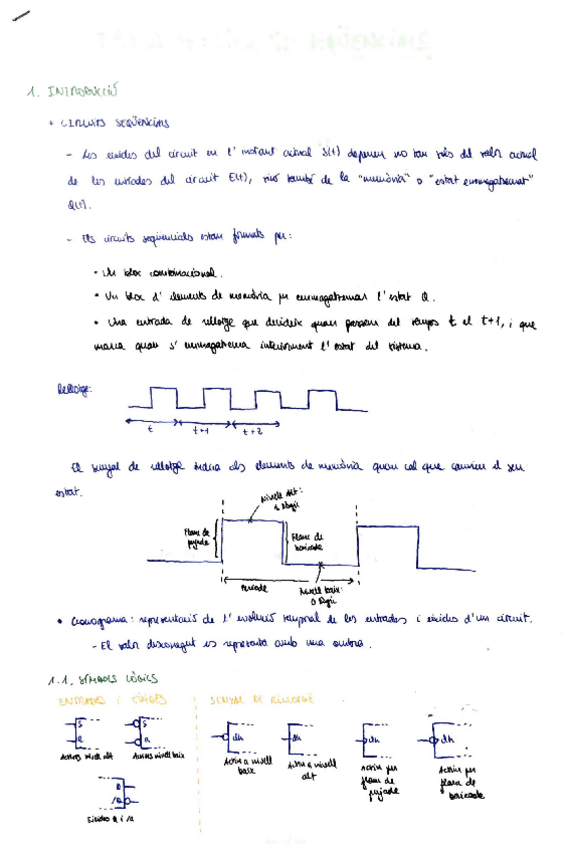 1. INTRODUCCIÓ
• CIRCUITS SEQÜENCIALS
- Les eixides del circuit en l'instant actual S(t) depenen no tan sols del valor actual
de les entrades del circuit E(t), sinó també de la "memòria" o "estat emmagatzemat"
Q(t).
- Els circuits seqüencials estan formats per:
• Un bloc combinacional.
• Un bloc d'elements de memòria per emmagatzemar l'estat Q.
• Una entrada de rellotge que decideix quan passem del temps t al t+1, i que
marca quan s'emmagatzema internament l'estat del sistema.
Rellotge:
t t+1 t+2
El senyal de rellotge indica als elements de memòria quan cal que canvien el seu
estat.
Nivell Alt:
1 lògic
Flanc de
pujada
Flanc de
baixada
Període
Nivell baix:
0 lògic
• Cronograma: representació de l'evolució temporal de les entrades i eixides d'un circuit.
- El valor desconegut es representa amb una ombra.
1.1. SÍMBOLS LÒGICS
ENTRADES I EIXIDES
SENYAL DE RELLOTGE
S
R
Actives nivell alt
S
R
Actives nivell baix
clk
Actiu a nivell
baix
clk
Actiu a nivell
alt
clk
Actiu per
flanc de
pujada
clk
Actiu per
flanc de
baixada
Q
/Q
Eixides Q i /Q